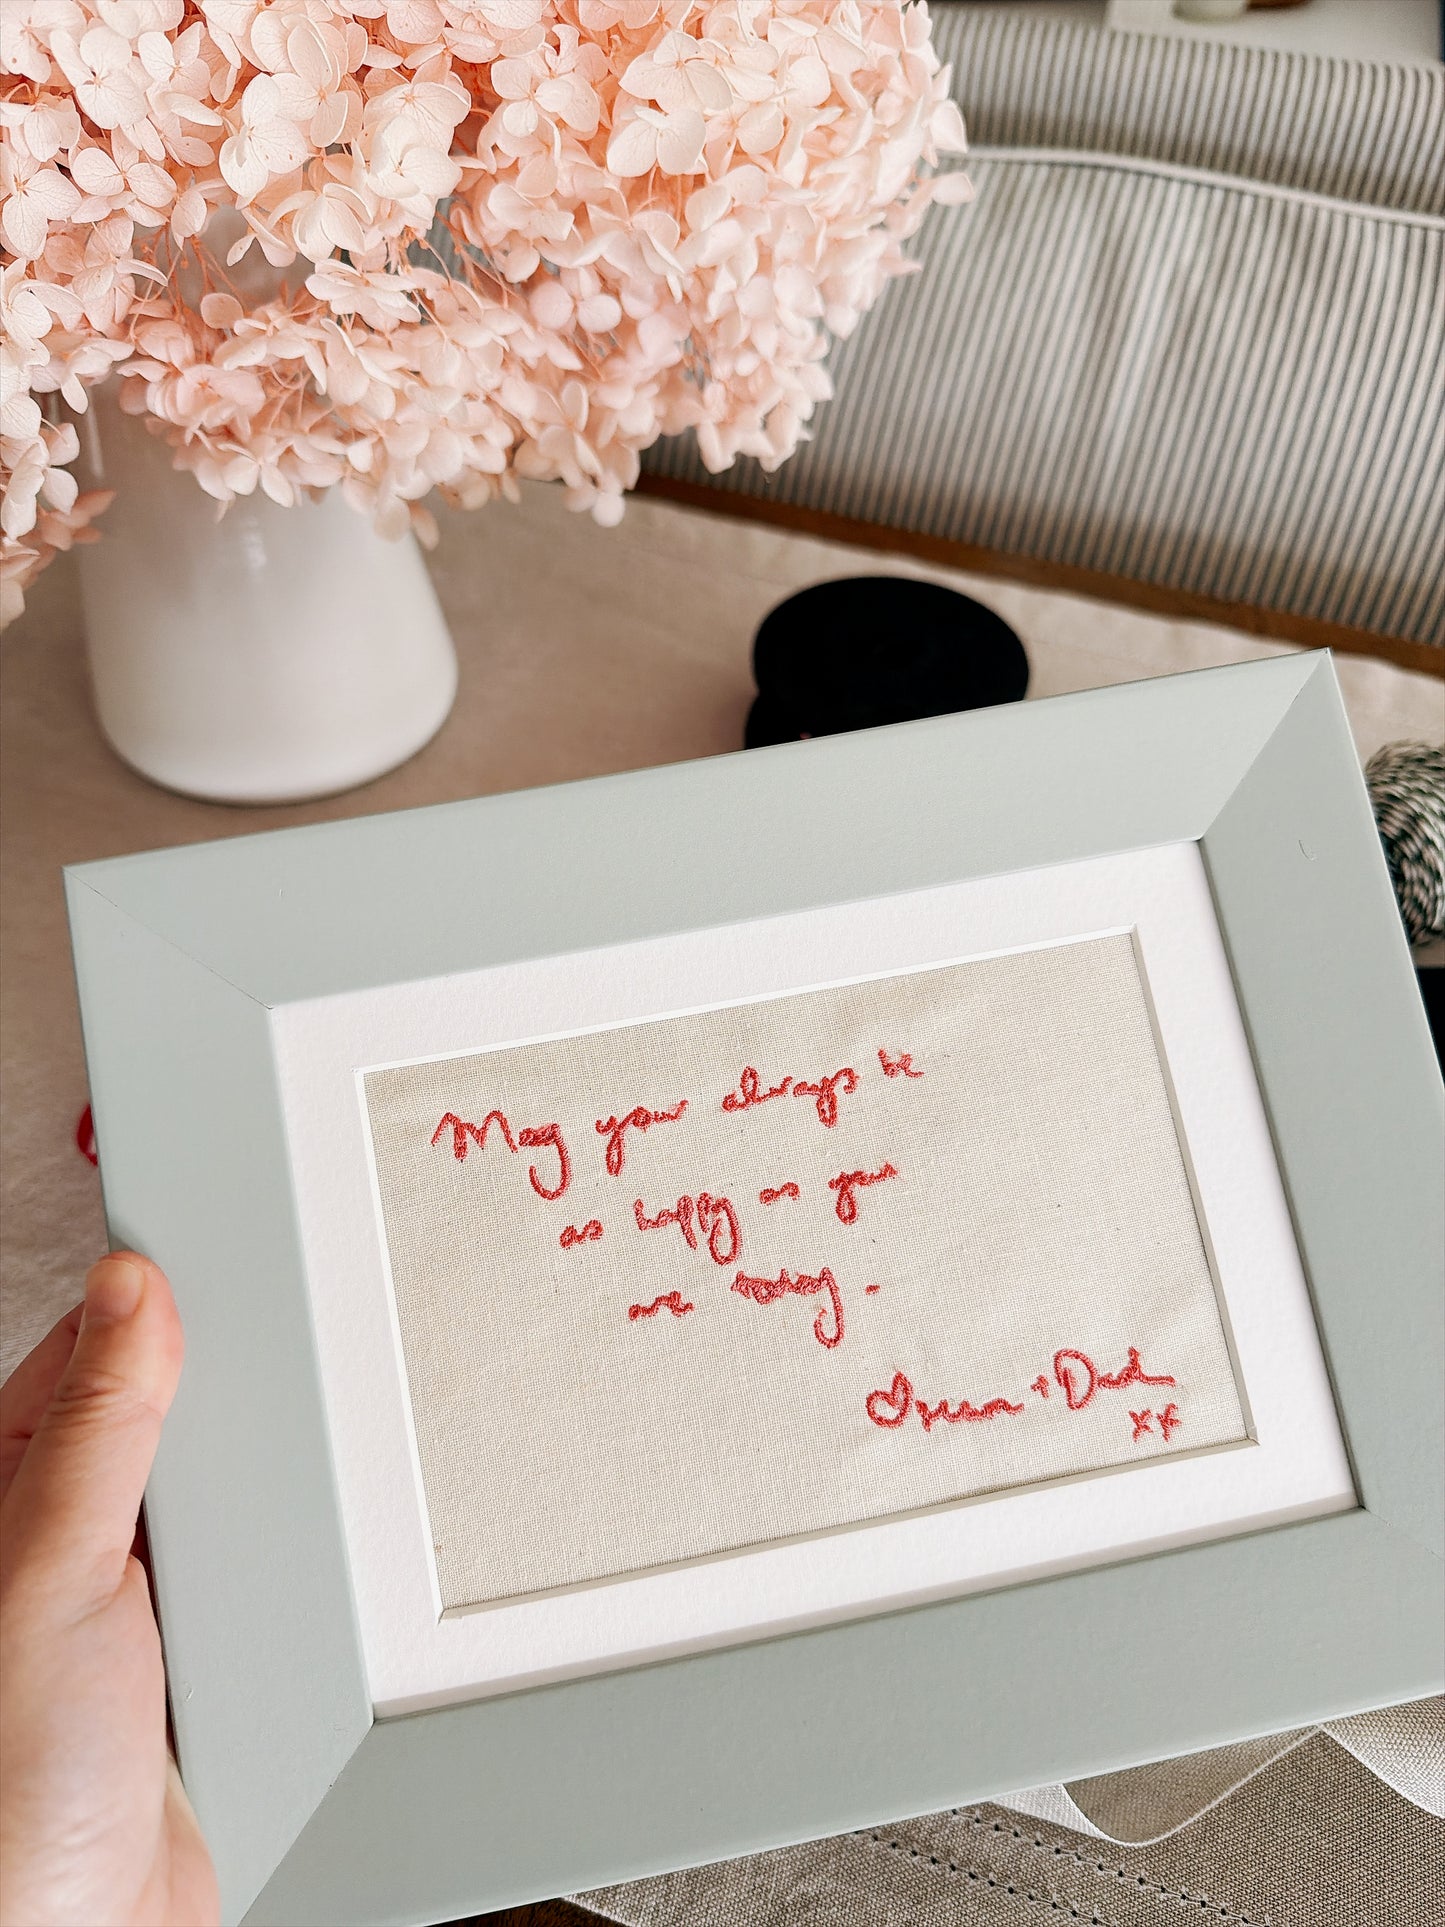 May your always be
as happy as you
are today.
♡ Mum + Dad
xx